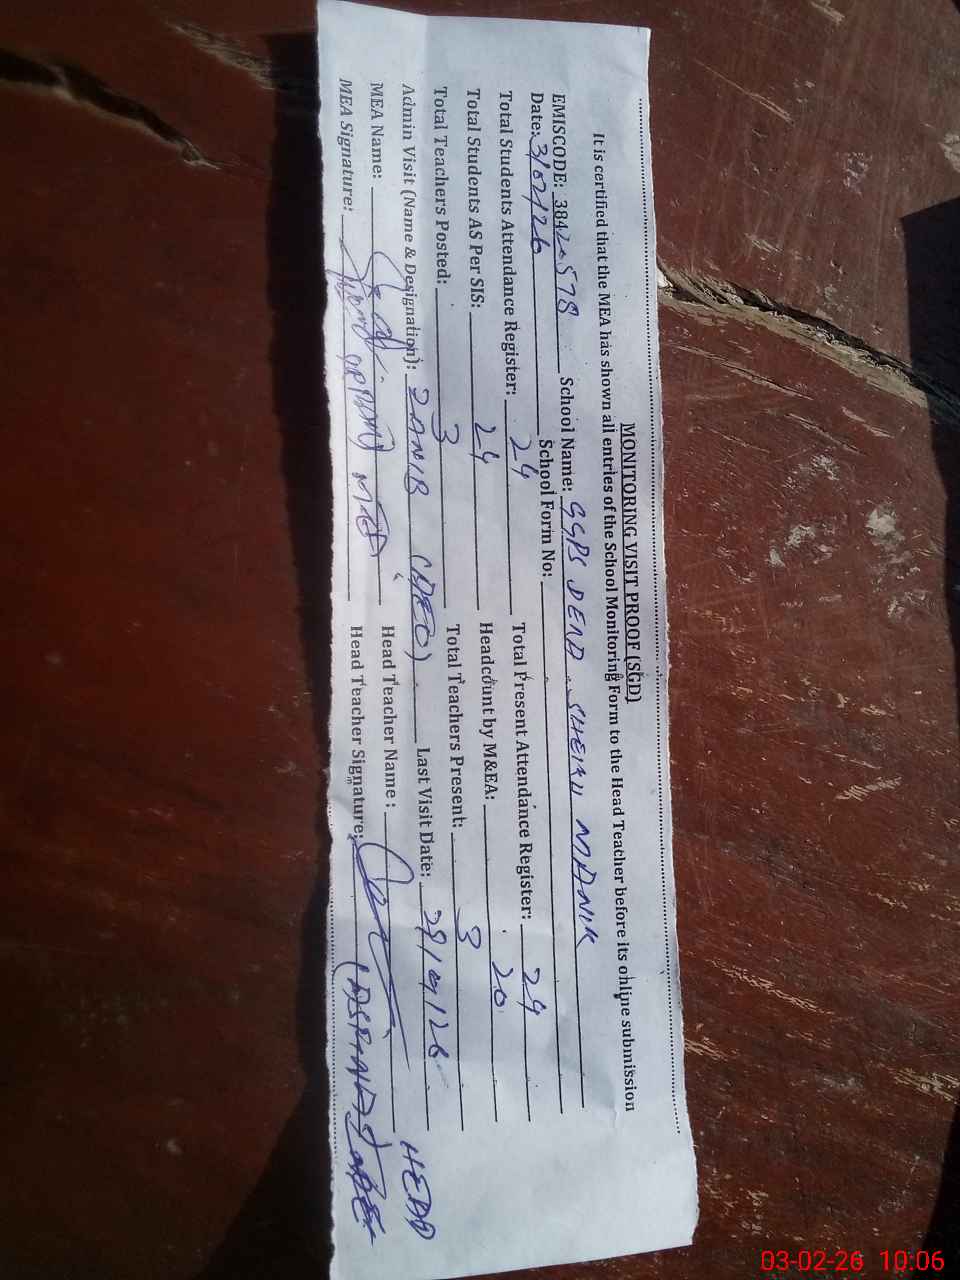 MONITORING VISIT PROOF (SGD)
It is certified that the MEA has shown all entries of the School Monitoring Form to the Head Teacher before its online submission
EMISCODE: 38420578 School Name: GGPS DERA SHEIKH MANIK
Date: 3/02/26 School Form No:
Total Students Attendance Register: 24 Total Present Attendance Register: 24
Total Students AS Per SIS: 24 Headcount by M&EA: 20
Total Teachers Posted: 3 Total Teachers Present: 3
Admin Visit (Name & Designation): ZANIB (AEO) Last Visit Date: 29/01/26
MEA Name: Head Teacher Name: HEAD
MEA Signature: MEA Head Teacher Signature:
03-02-26 10:06